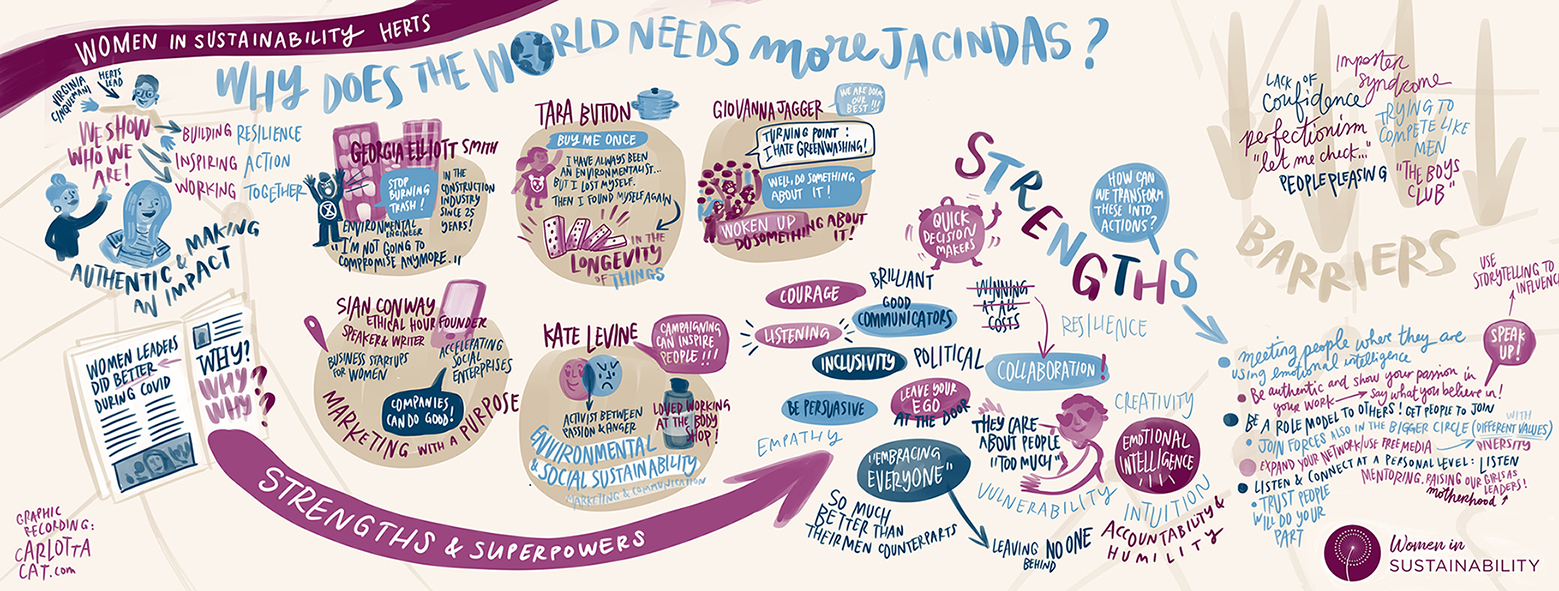 WOMEN IN SUSTAINABILITY HERTS
WHY DOES THE WORLD NEEDS more JACINDAS?
VIRGINIA
CINQUEMANI
HERTS
LEAD
WE SHOW
WHO WE
ARE!
BUILDING RESILIENCE
INSPIRING ACTION
WORKING TOGETHER
AUTHENTIC & MAKING
AN IMPACT
WOMEN LEADERS
DID BETTER
DURING COVID
WHY?
WHY?
WHY?
GRAPHIC
RECORDING:
CARLOTTA
CAT.com
STRENGTHS & SUPERPOWERS
GEORGIA ELLIOTT SMITH
STOP
BURNING
TRASH!
IN THE
CONSTRUCTION
INDUSTRY
SINCE 25
YEARS!
ENVIRONMENTAL
ENGINEER
"I'M NOT GOING TO
COMPROMISE ANYMORE.."
TARA BUTTON
BUY ME ONCE
I HAVE ALWAYS BEEN
AN ENVIRONMENTALIST...
BUT I LOST MYSELF.
THEN I FOUND MYSELF AGAIN
IN THE
LONGEVITY
OF THINGS
GIOVANNA JAGGER
WE ARE DOIN
OUR
BEST!!!
TURNING POINT:
I HATE GREENWASHING!
WELL, DO SOMETHING
ABOUT IT!
WOKEN UP
DO SOMETHING ABOUT
IT!
SIAN CONWAY
ETHICAL HOUR FOUNDER
SPEAKER & WRITER
BUSINESS STARTUPS
FOR WOMEN
ACCELERATING
SOCIAL
ENTERPRISES
COMPANIES
CAN DO GOOD!
MARKETING WITH A PURPOSE
KATE LEVINE
CAMPAIGNING
CAN INSPIRE
PEOPLE!!!
ACTIVIST BETWEEN
PASSION & ANGER
LOVED WORKING
AT THE BODY
SHOP!
ENVIRONMENTAL
& SOCIAL SUSTAINABILITY
MARKETING & COMMUNICATION
STRENGTHS
QUICK
DECISION
MAKERS
HOW CAN
WE TRANSFORM
THESE INTO
ACTIONS?
COURAGE
BRILLIANT
GOOD
COMMUNICATORS
WINNING
AT ALL
COSTS
LISTENING
RESILIENCE
INCLUSIVITY
POLITICAL
COLLABORATION!
BE PERSUASIVE
LEAVE YOUR
EGO
AT THE DOOR
CREATIVITY
EMPATHY
THEY CARE
ABOUT PEOPLE
"TOO MUCH"
EMOTIONAL
INTELLIGENCE
"EMBRACING
EVERYONE"
VULNERABILITY
INTUITION
SO MUCH
BETTER THAN
THEIR MEN COUNTERPARTS
LEAVING NO ONE
BEHIND
ACCOUNTABILITY &
HUMILITY
LACK OF
confidence
imposter
syndrome
perfectionism
"let me check..."
PEOPLE PLEASING
TRYING TO
COMPETE LIKE
MEN
"THE BOYS
CLUB"
BARRIERS
USE
STORYTELLING TO
INFLUENC
SPEAK
UP!
meeting people where they are
using emotional intelligence
Be authentic and show your passion in
your work → Say what you believe in!
BE A ROLE MODEL TO OTHERS! GET PEOPLE TO JOIN
JOIN FORCES ALSO IN THE BIGGER CIRCLE (DIFFERENT VALUES)
WITH
DIVERSITY
EXPAND YOUR NETWORK/USE FREE MEDIA
LISTEN & CONNECT AT A PERSONAL LEVEL: LISTEN
MENTORING. RAISING OUR GIRLS AS
LEADERS!
motherhood
TRUST PEOPLE
WILL DO YOUR
PART
Women in
SUSTAINABILITY